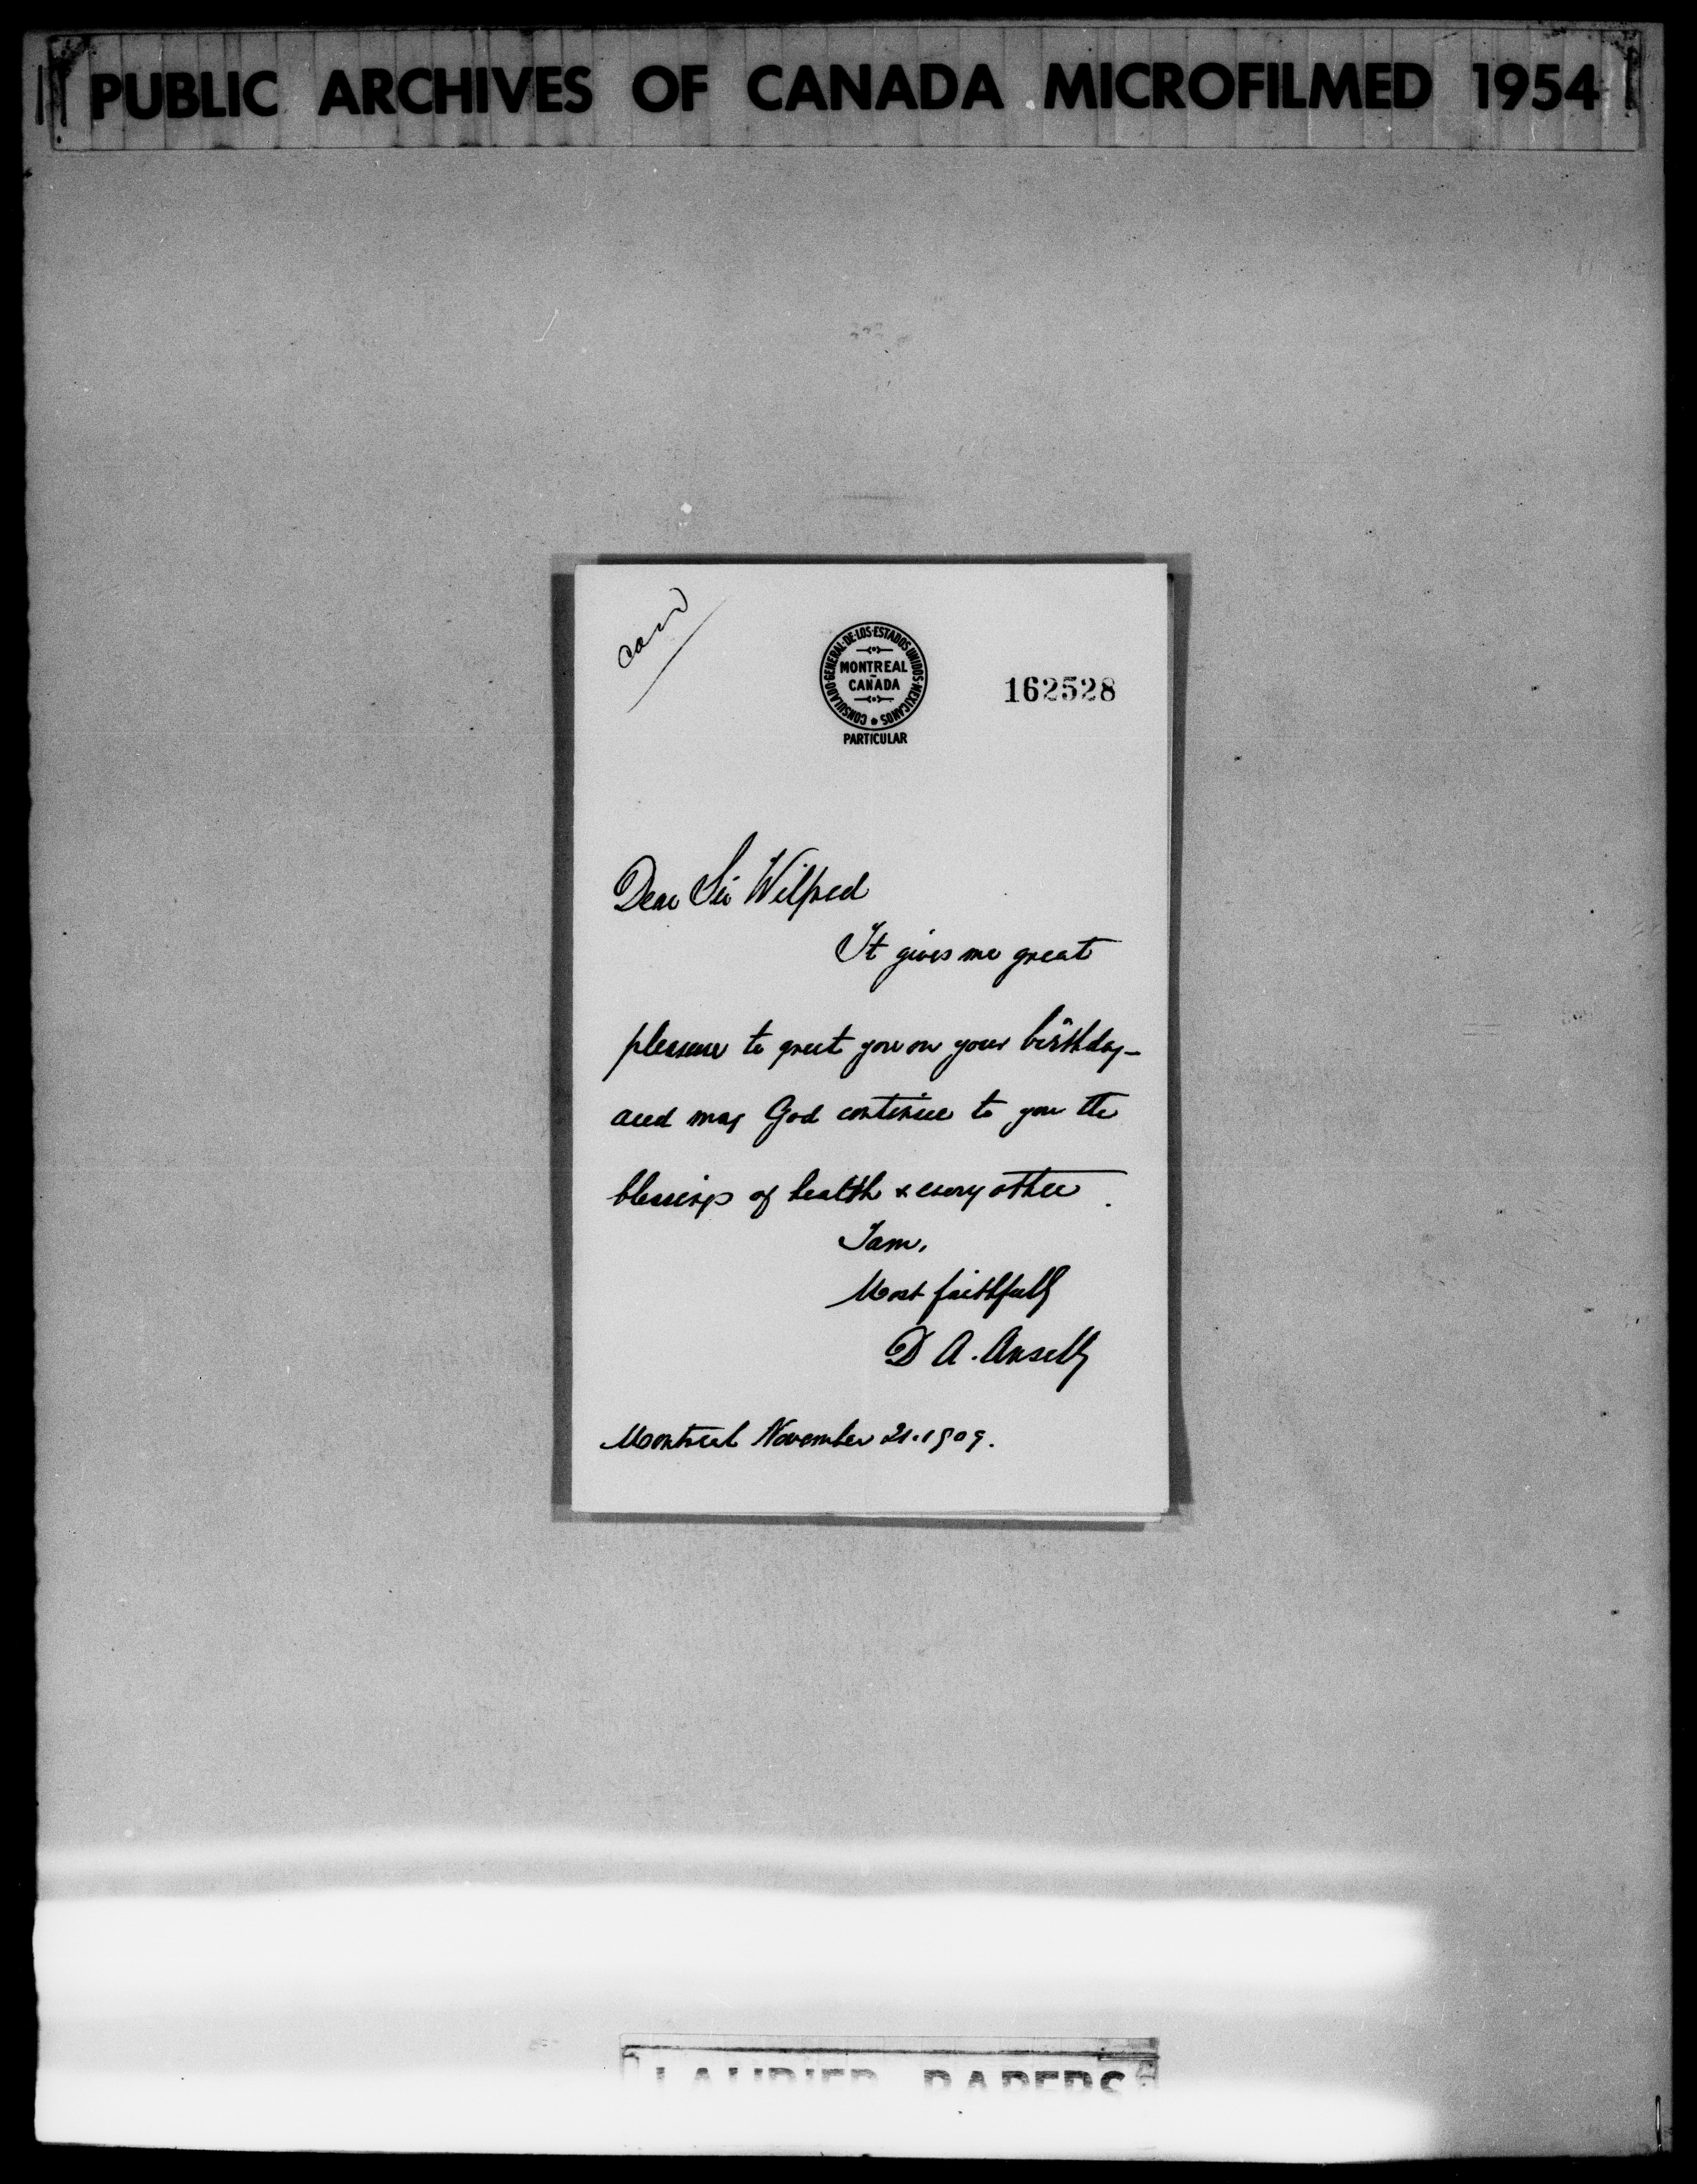 PUBLIC ARCHIVES OF CANADA MICROFILMED 1954
CONSULADO·GENERAL·DE·LOS·ESTADOS UNIDOS·MEXICANOS
MONTREAL
CANADA
PARTICULAR
162528
Dear Sir Wilfred
It gives me great
pleasure to greet you on your birthday –
and may God continue to you the
blessings of health & every other.
I am,
Most faithfully
D A. Ansell
Montreal November 21. 1909.
LAURIER PAPERS